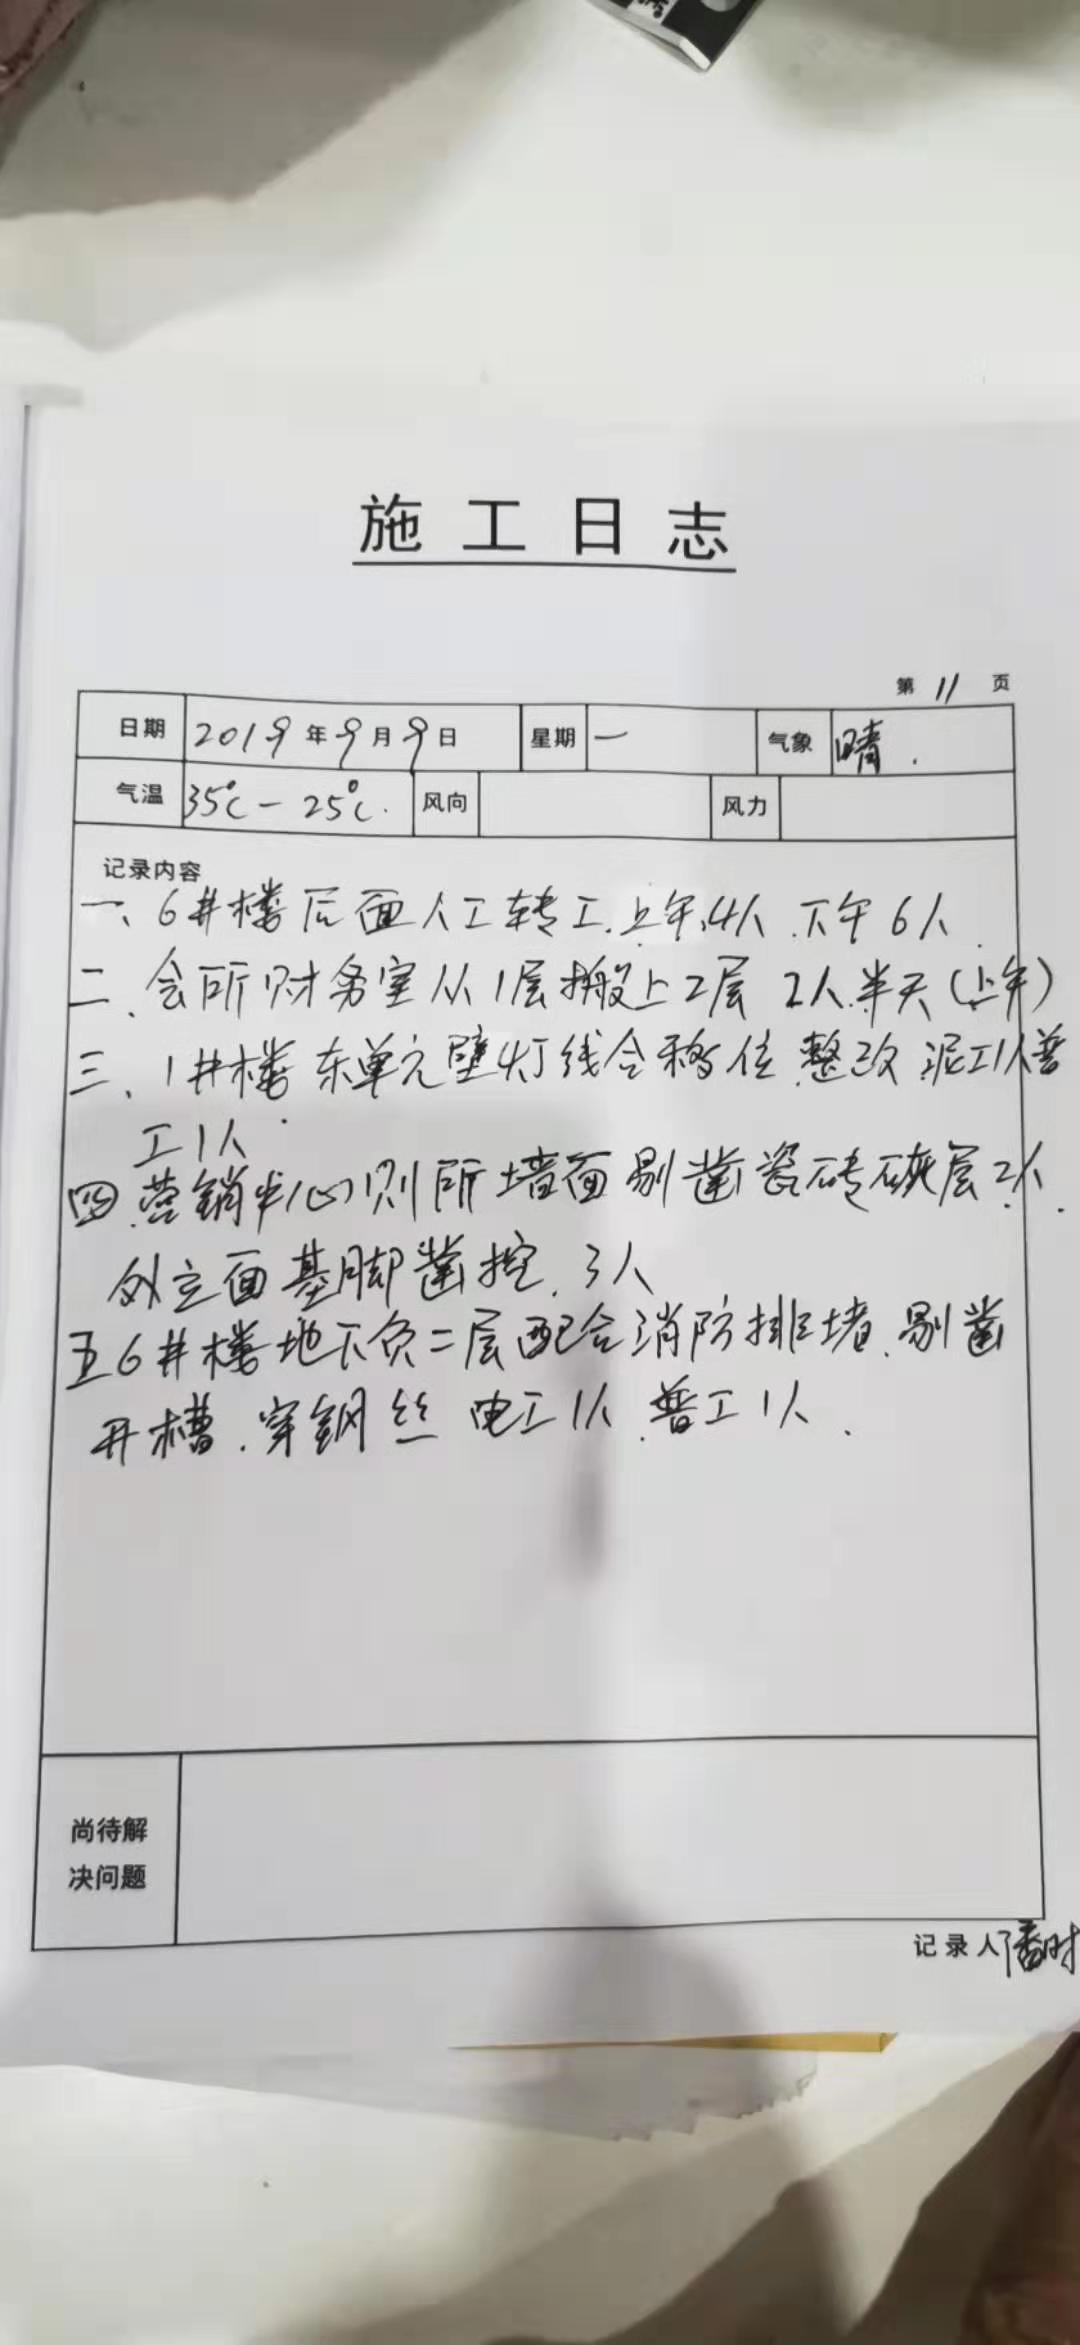 施工日志
第 11 页
日期 2019年9月9日 星期 一 气象 晴.
气温 35℃-25℃. 风向 风力
记录内容
一、6#楼后面人工转工.上午4人.下午6人.
二、会所财务室从1层搬上2层 2人.半天(上午)
三、1#楼东单元壁灯线合移位整改 泥工1人普
工1人.
四.营销中心厕所墙面剔凿瓷砖灰层2人.
外立面基脚凿挖.3人
五6#楼地下负二层配合消防排堵.剔凿
开槽.穿钢丝 电工1人.普工1人.
尚待解
决问题
记录人 潘时